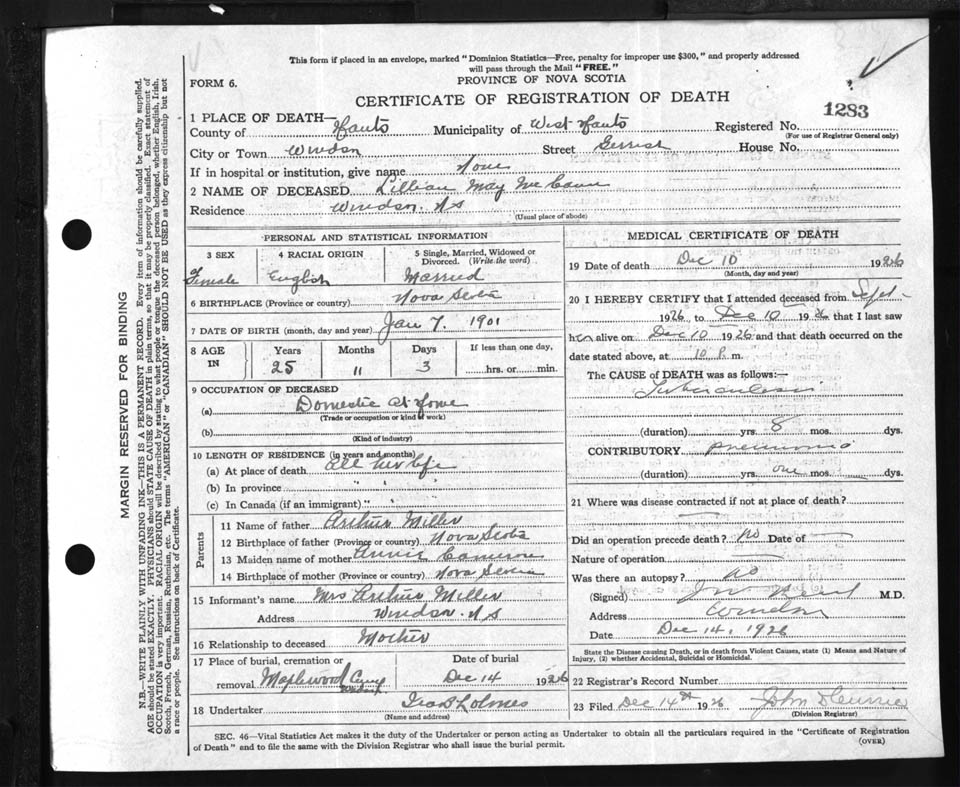 This form if placed in an envelope, marked "Dominion Statistics—Free, penalty for improper use $300," and properly addressed
will pass through the Mail "FREE."
FORM 6.
PROVINCE OF NOVA SCOTIA
CERTIFICATE OF REGISTRATION OF DEATH
1283
1 PLACE OF DEATH—
County of Hants Municipality of West Hants Registered No.
(For use of Registrar General only)
City or Town Windsor Street Gerrish House No.
If in hospital or institution, give name None
2 NAME OF DECEASED Lillian May McCann
Residence Windsor. N S
(Usual place of abode)
PERSONAL AND STATISTICAL INFORMATION
3 SEX 4 RACIAL ORIGIN 5 Single, Married, Widowed or Divorced. (Write the word)
Female English Married
6 BIRTHPLACE (Province or country) Nova Scotia
7 DATE OF BIRTH (month, day and year) Jan 7. 1901
8 AGE IN Years Months Days If less than one day,
25 11 3 hrs. or min.
9 OCCUPATION OF DECEASED
(a) Domestic at Home
(Trade or occupation or kind of work)
(b)
(Kind of industry)
10 LENGTH OF RESIDENCE (in years and months)
(a) At place of death all her life
(b) In province " "
(c) In Canada (if an immigrant) " "
Parents
11 Name of father Arthur Miller
12 Birthplace of father (Province or country) Nova Scotia
13 Maiden name of mother Annie Cameron
14 Birthplace of mother (Province or country) Nova Scotia
15 Informant's name Mrs Arthur Miller
Address Windsor. N S
16 Relationship to deceased Mother
17 Place of burial, cremation or removal Maplewood Cemy Windsor
Date of burial
Dec 14 1926
18 Undertaker Ira B Holmes
(Name and address)
MEDICAL CERTIFICATE OF DEATH
19 Date of death Dec 10 1926
(Month, day and year)
20 I HEREBY CERTIFY that I attended deceased from Sept -
1926 to Dec 10 1926 that I last saw
her alive on Dec 10 1926 and that death occurred on the
date stated above, at 10 P. m.
The CAUSE of DEATH was as follows:—
Tuberculosis
(duration) yrs. 8 mos. dys.
CONTRIBUTORY pneumonia
(duration) yrs. one mos. dys.
21 Where was disease contracted if not at place of death?
Did an operation precede death? no Date of —
Nature of operation —
Was there an autopsy? no
(Signed) M.D.
Address Windsor
Date Dec 14, 1926
State the Disease causing Death, or in death from Violent Causes, state (1) Means and Nature of
Injury, (2) whether Accidental, Suicidal or Homicidal.
22 Registrar's Record Number
23 Filed Dec 14th 1926 John
(Division Registrar)
SEC. 46—Vital Statistics Act makes it the duty of the Undertaker or person acting as Undertaker to obtain all the particulars required in the "Certificate of Registration
of Death" and to file the same with the Division Registrar who shall issue the burial permit.
(OVER)
MARGIN RESERVED FOR BINDING
N.B.—WRITE PLAINLY WITH UNFADING INK—THIS IS A PERMANENT RECORD. Every item of information should be carefully supplied.
AGE should be stated EXACTLY. PHYSICIANS should STATE CAUSE OF DEATH in plain terms, so that it may be properly classified. Exact statement of
OCCUPATION is very important. RACIAL ORIGIN will be described by stating to what people or tongue the deceased person belonged, whether English, Irish,
Scotch, French, German, Russian, Ruthenian, etc. The terms "AMERICAN" or "CANADIAN" SHOULD NOT BE USED as they express citizenship but not
a race or people. See instructions on back of Certificate.